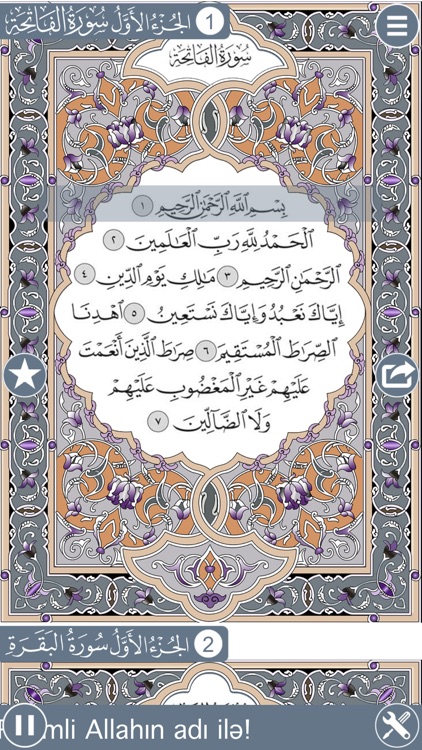 الجُزْءُ الأَوَّلُ سُورَةُ الفَاتِحَةِ 1
سُورَةُ الفَاتِحَةِ
بِسْمِ ٱللَّهِ ٱلرَّحْمَٰنِ ٱلرَّحِيمِ ١
ٱلْحَمْدُ لِلَّهِ رَبِّ ٱلْعَٰلَمِينَ ٢
ٱلرَّحْمَٰنِ ٱلرَّحِيمِ ٣ مَٰلِكِ يَوْمِ ٱلدِّينِ ٤
إِيَّاكَ نَعْبُدُ وَإِيَّاكَ نَسْتَعِينُ ٥ ٱهْدِنَا
ٱلصِّرَٰطَ ٱلْمُسْتَقِيمَ ٦ صِرَٰطَ ٱلَّذِينَ أَنْعَمْتَ
عَلَيْهِمْ غَيْرِ ٱلْمَغْضُوبِ عَلَيْهِمْ
وَلَا ٱلضَّآلِّينَ ٧
الجُزْءُ الأَوَّلُ سُورَةُ البَقَرَةِ 2
Allahın adı ilə!